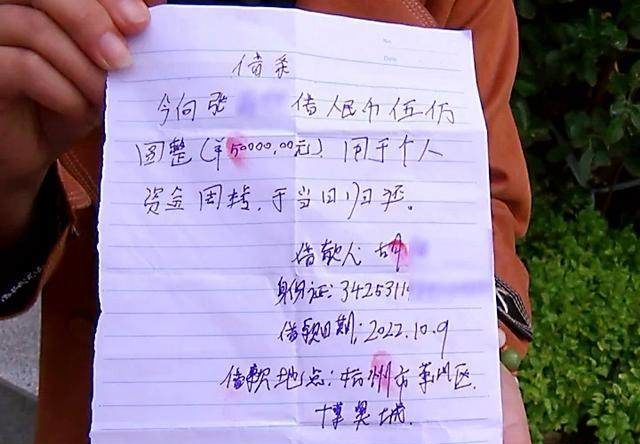 No.
Date
借条
今向张 借人民币伍
圆整(￥50000.00元)用于个人
资金周转,于当日归还。
借款人 胡
身份证:3425311
借款日期:2022.10.9
借款地点:杭州市萧山区.
博奥城.